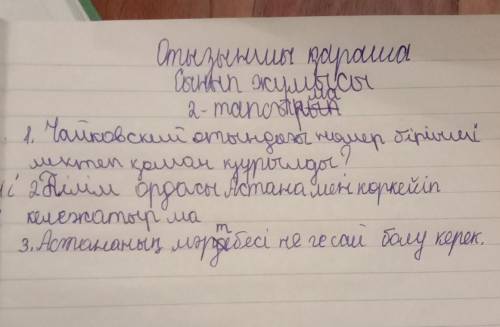 Отызыншы қараша
Сынып жумысы
2-тапсырма
1. Чайковский атындағы номер бірінші
мектеп қашан құрылды?
2. Білім ордасы Астана мен көркейіп
кележатыр ма
3. Астананың мәртебесі неге сай болу керек.